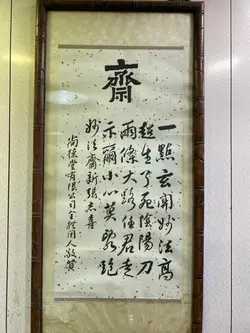 齋
一點玄關妙法高
超生了死陰陽刀
兩條大路任君走
示爾小心莫亂跑
妙法齋新張志喜
尚德堂有限公司全體同人敬賀